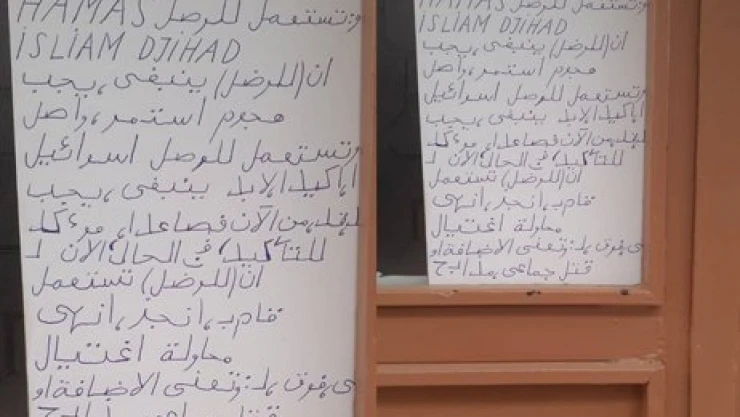 HAMAS وتستعمل للرصل
İSLİAM DJİHAD
ان (للرصل) ينبغى، يجب
هجوم استمر، واصل
وتستعمل للوصل اسرائيل
اكيد الابد ينبغى، يجب
من الآن فصاعدا، مؤكد
للتأكيد، في الحال الآن لـ
ان (للرضل) تستعمل
قام ب، انجز، انهى
محاولة اغتيال
فوق، لـ: وتعنى الاضافة او
HAMAS وتستعمل للرصل
İSLİAM DJİHAD
ان (للرضل) ينبغى، يجب
هجوم استمر، واصل
وتستعمل للرصل اسرائيل
اكيد الابد ينبغى، يجب
من الآن فصاعدا، مؤكد
للتأكيد، في الحال الآن لـ
ان (للرضل) تستعمل
قام ب، انجز، انهى
محاولة اغتيال
فوق، لـ: وتعنى الاضافة او
قتل جماعى،